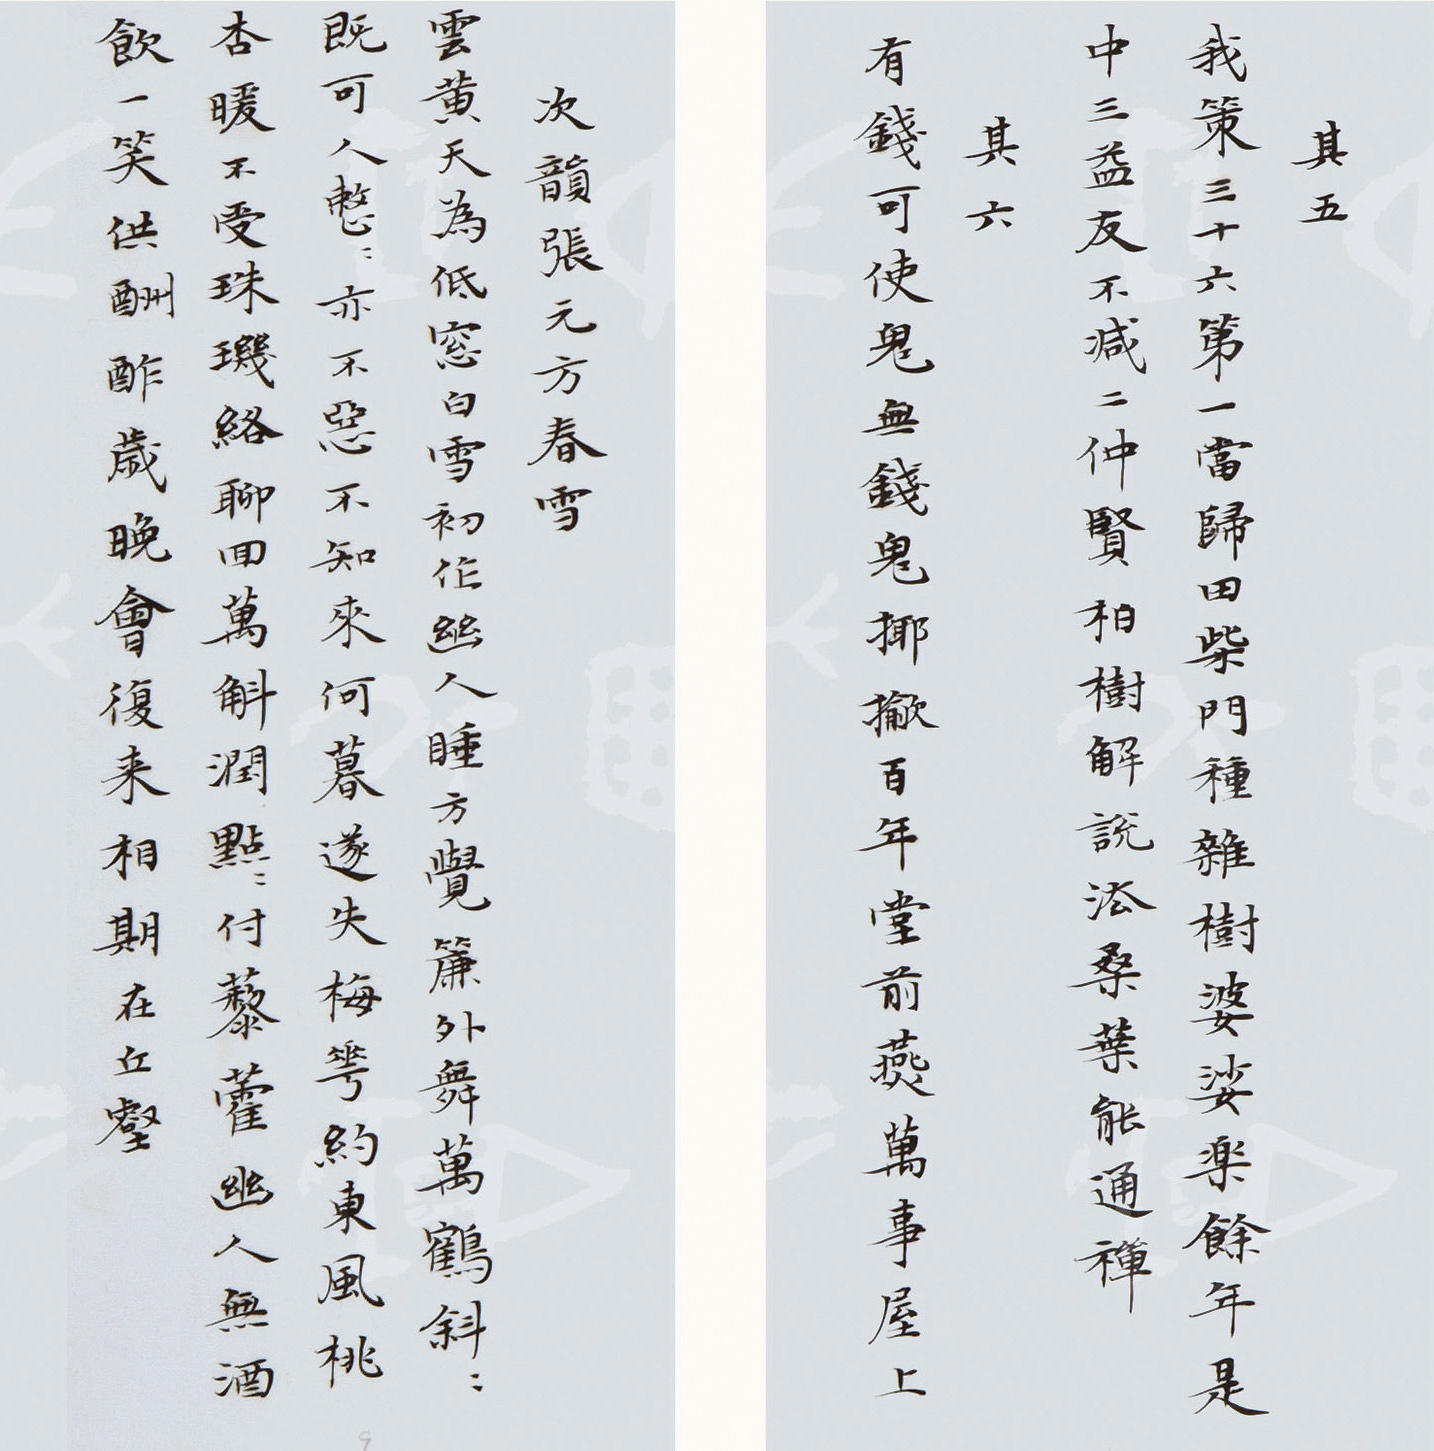 其五
我策三十六第一當歸田柴門種雜樹婆娑楽餘年是
中三益友不減二仲賢柏樹解說法桑葉能通禪
其六
有錢可使鬼無錢鬼揶撳百年堂前燕萬事屋上
次韻張元方春雪
雲黄天為低窓白雪初作幽人睡方覺簾外舞萬鶴斜〻
既可人憗〻亦不惡不知來何暮遂失梅䓊約東風桃
杏暖不受珠璣絡聊回萬斛潤點〻付藜藿幽人無酒
飲一笑供酬酢歲晚會復来相期在丘壑